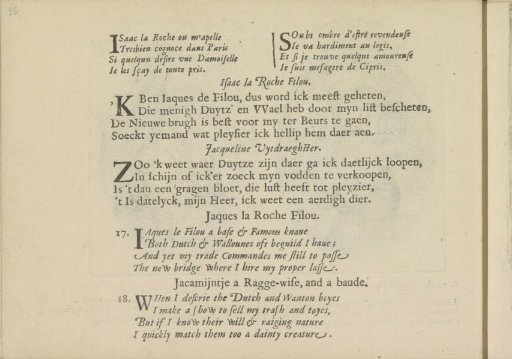 26
Isaac la Roche on m'apelle
Tresbien cognoce dans Paris
Si quelqun desire vne Damoiselle
Ie les sçay de toute pris.
Soubs ombre d'estre revendeuse
Ie va hardiment au logis,
Et si je trouve quelque amoureuse
Ie suis mesagere de Cipris.
Isaac la Roche Filou.
'K Ben Iaques de Filou, dus word ick meest geheten,
Die menigh Duytz' en VVael heb door myn list bescheten,
De Nieuwe brugh is best voor my ter Beurs te gaen,
Soeckt yemand wat pleysier ick hellip hem daer aen.
Jacqueline Vytdraeghster.
Zoo 'k weet waer Duytze zijn daer ga ick daetlijck loopen,
In schijn of ick'er zoeck myn vodden te verkoopen,
Is 't dan een gragen bloet, die lust heeft tot pleyzier,
't Is datelyck, mijn Heer, ick weet een aerdigh dier.
Jaques la Roche Filou.
17. Iaques le Filou a base & Famous knaue
Both Dutch & Wallounes ofs beguild I haue;
And yet my trade Commandes me still to passe
The new bridge where I hire my proper lasse.
Jacamijntje a Ragge-wife, and a baude.
18. When I descrie the Dutch and Wanton boyes
I make a show to sell my trash and toyes,
But if I know their will & raiging nature
I quickly match them too a dainty creature.